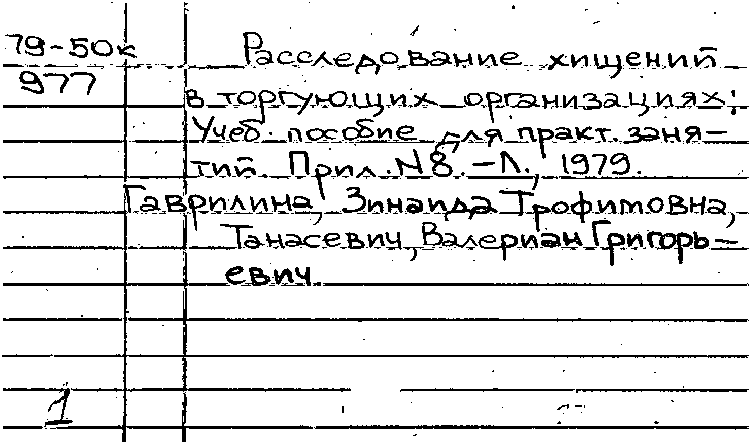 79-50к
977
Расследование хищений
в торгующих организациях:
Учеб. пособие для практ. заня-
тий. Прил. N8. - Л., 1979.
Гаврилина, Зинаида Трофимовна,
Танасевич, Валериан Григорь-
евич
1